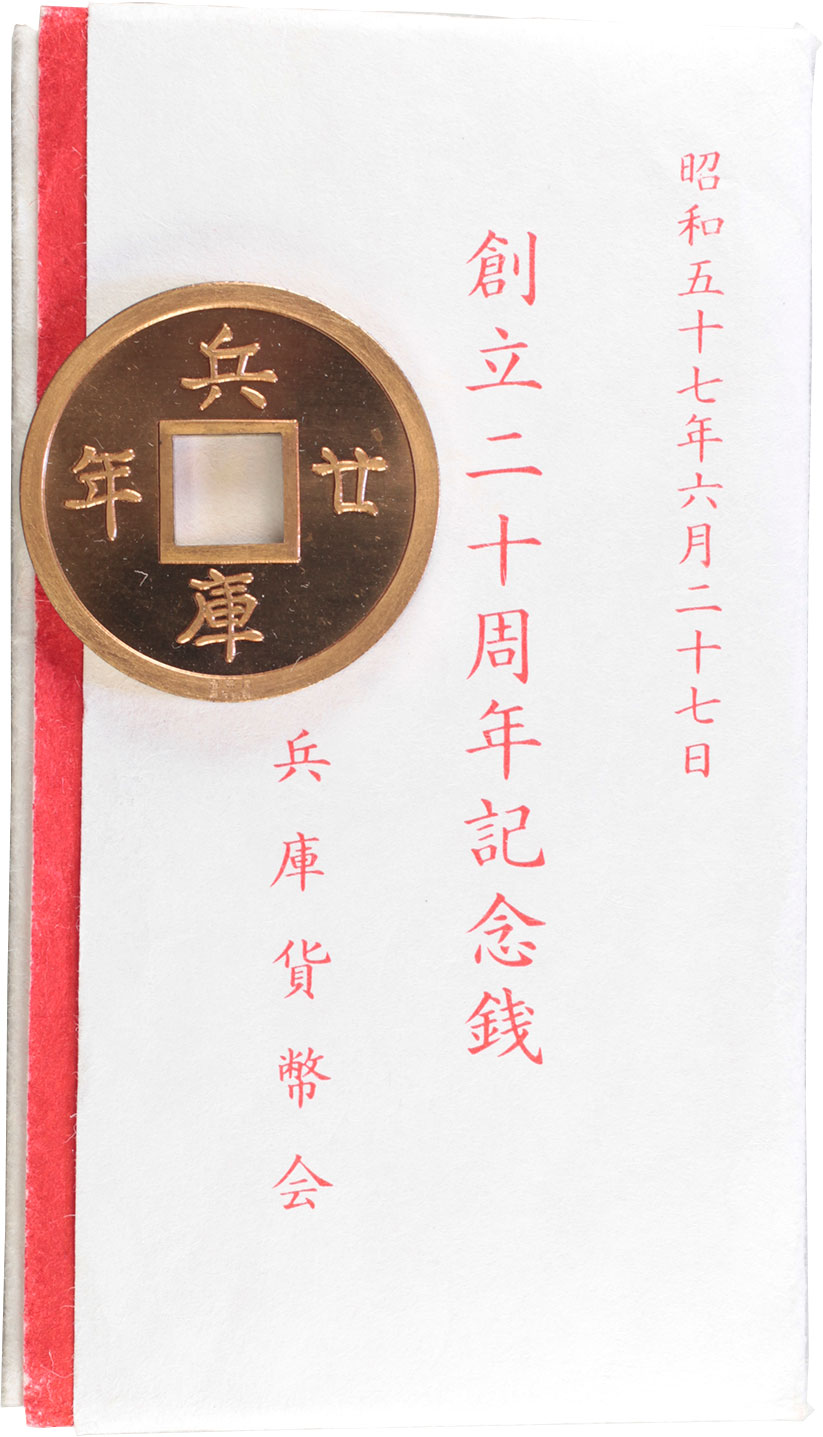 昭和五十七年六月二十七日
創立二十周年記念銭
兵庫貨幣会
兵庫
廿年